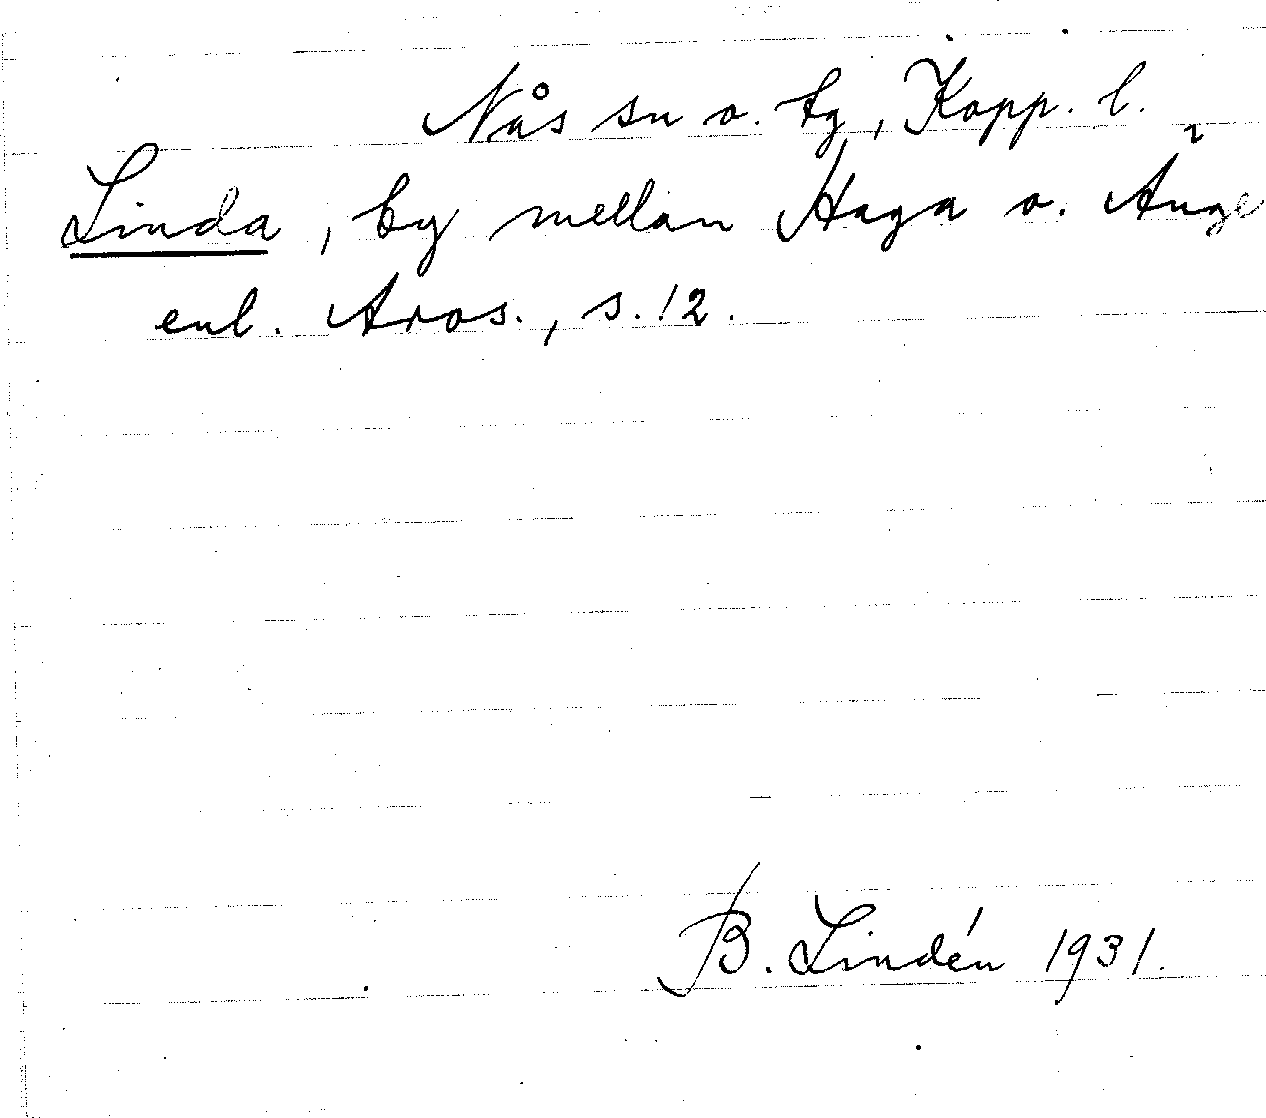 Nås sn o. tg, Kopp. l.
Linda, by mellan Haga o. Ånge
enl. Aros., s. 12.
B. Lindén 1931.